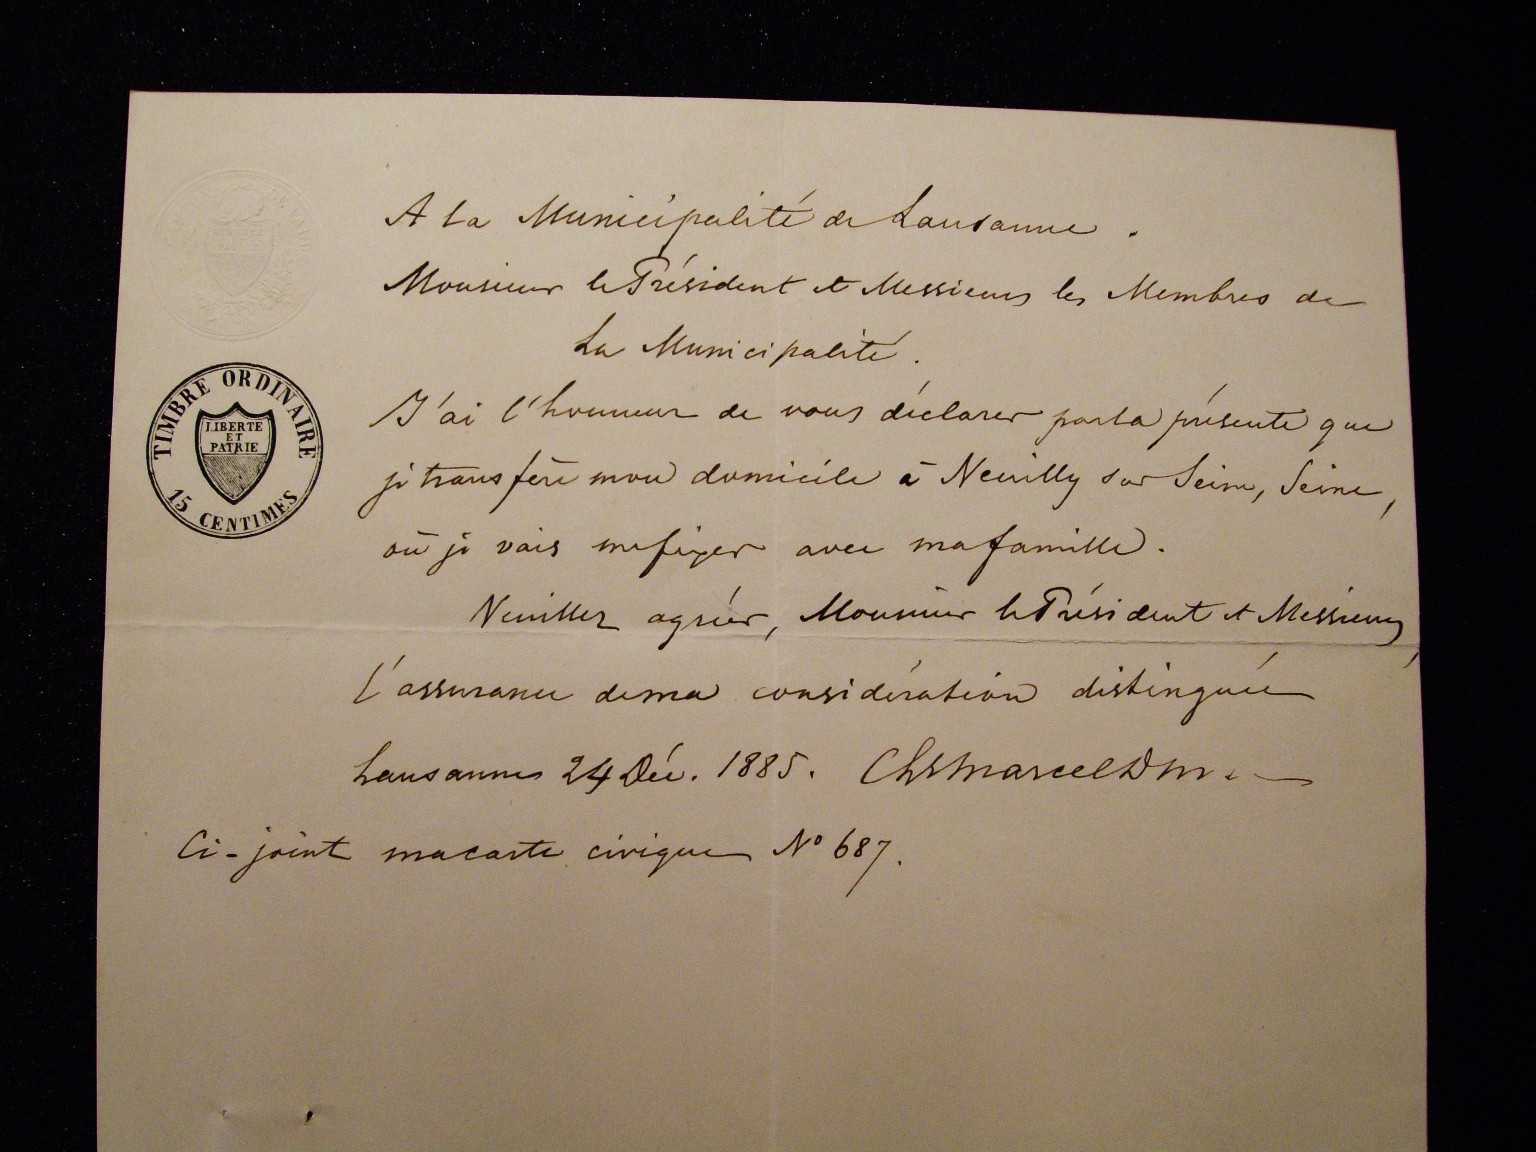 A la Municipalité de Lausanne.
Monsieur le Président et Messieurs les Membres de
La Municipalité.
J'ai l'honneur de vous déclarer par la présente que
je transfère mon domicile à Neuilly sur Seine, Seine,
où je vais me fixer avec ma famille.
Veuillez agréer, Monsieur le Président et Messieurs,
l'assurance de ma considération distinguée
Lausanne 24 Déc. 1885. Chs Marcel
Ci-joint ma carte civique No 687.
TIMBRE ORDINAIRE
LIBERTE
ET
PATRIE
15 CENTIMES